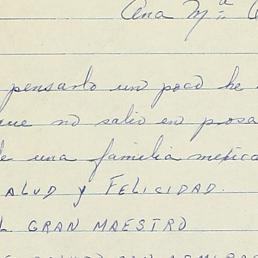 Ana Mª
pensarlo un poco he
que no salió en prosa
de una familia mexica
SALUD y FELICIDAD.
EL GRAN MAESTRO